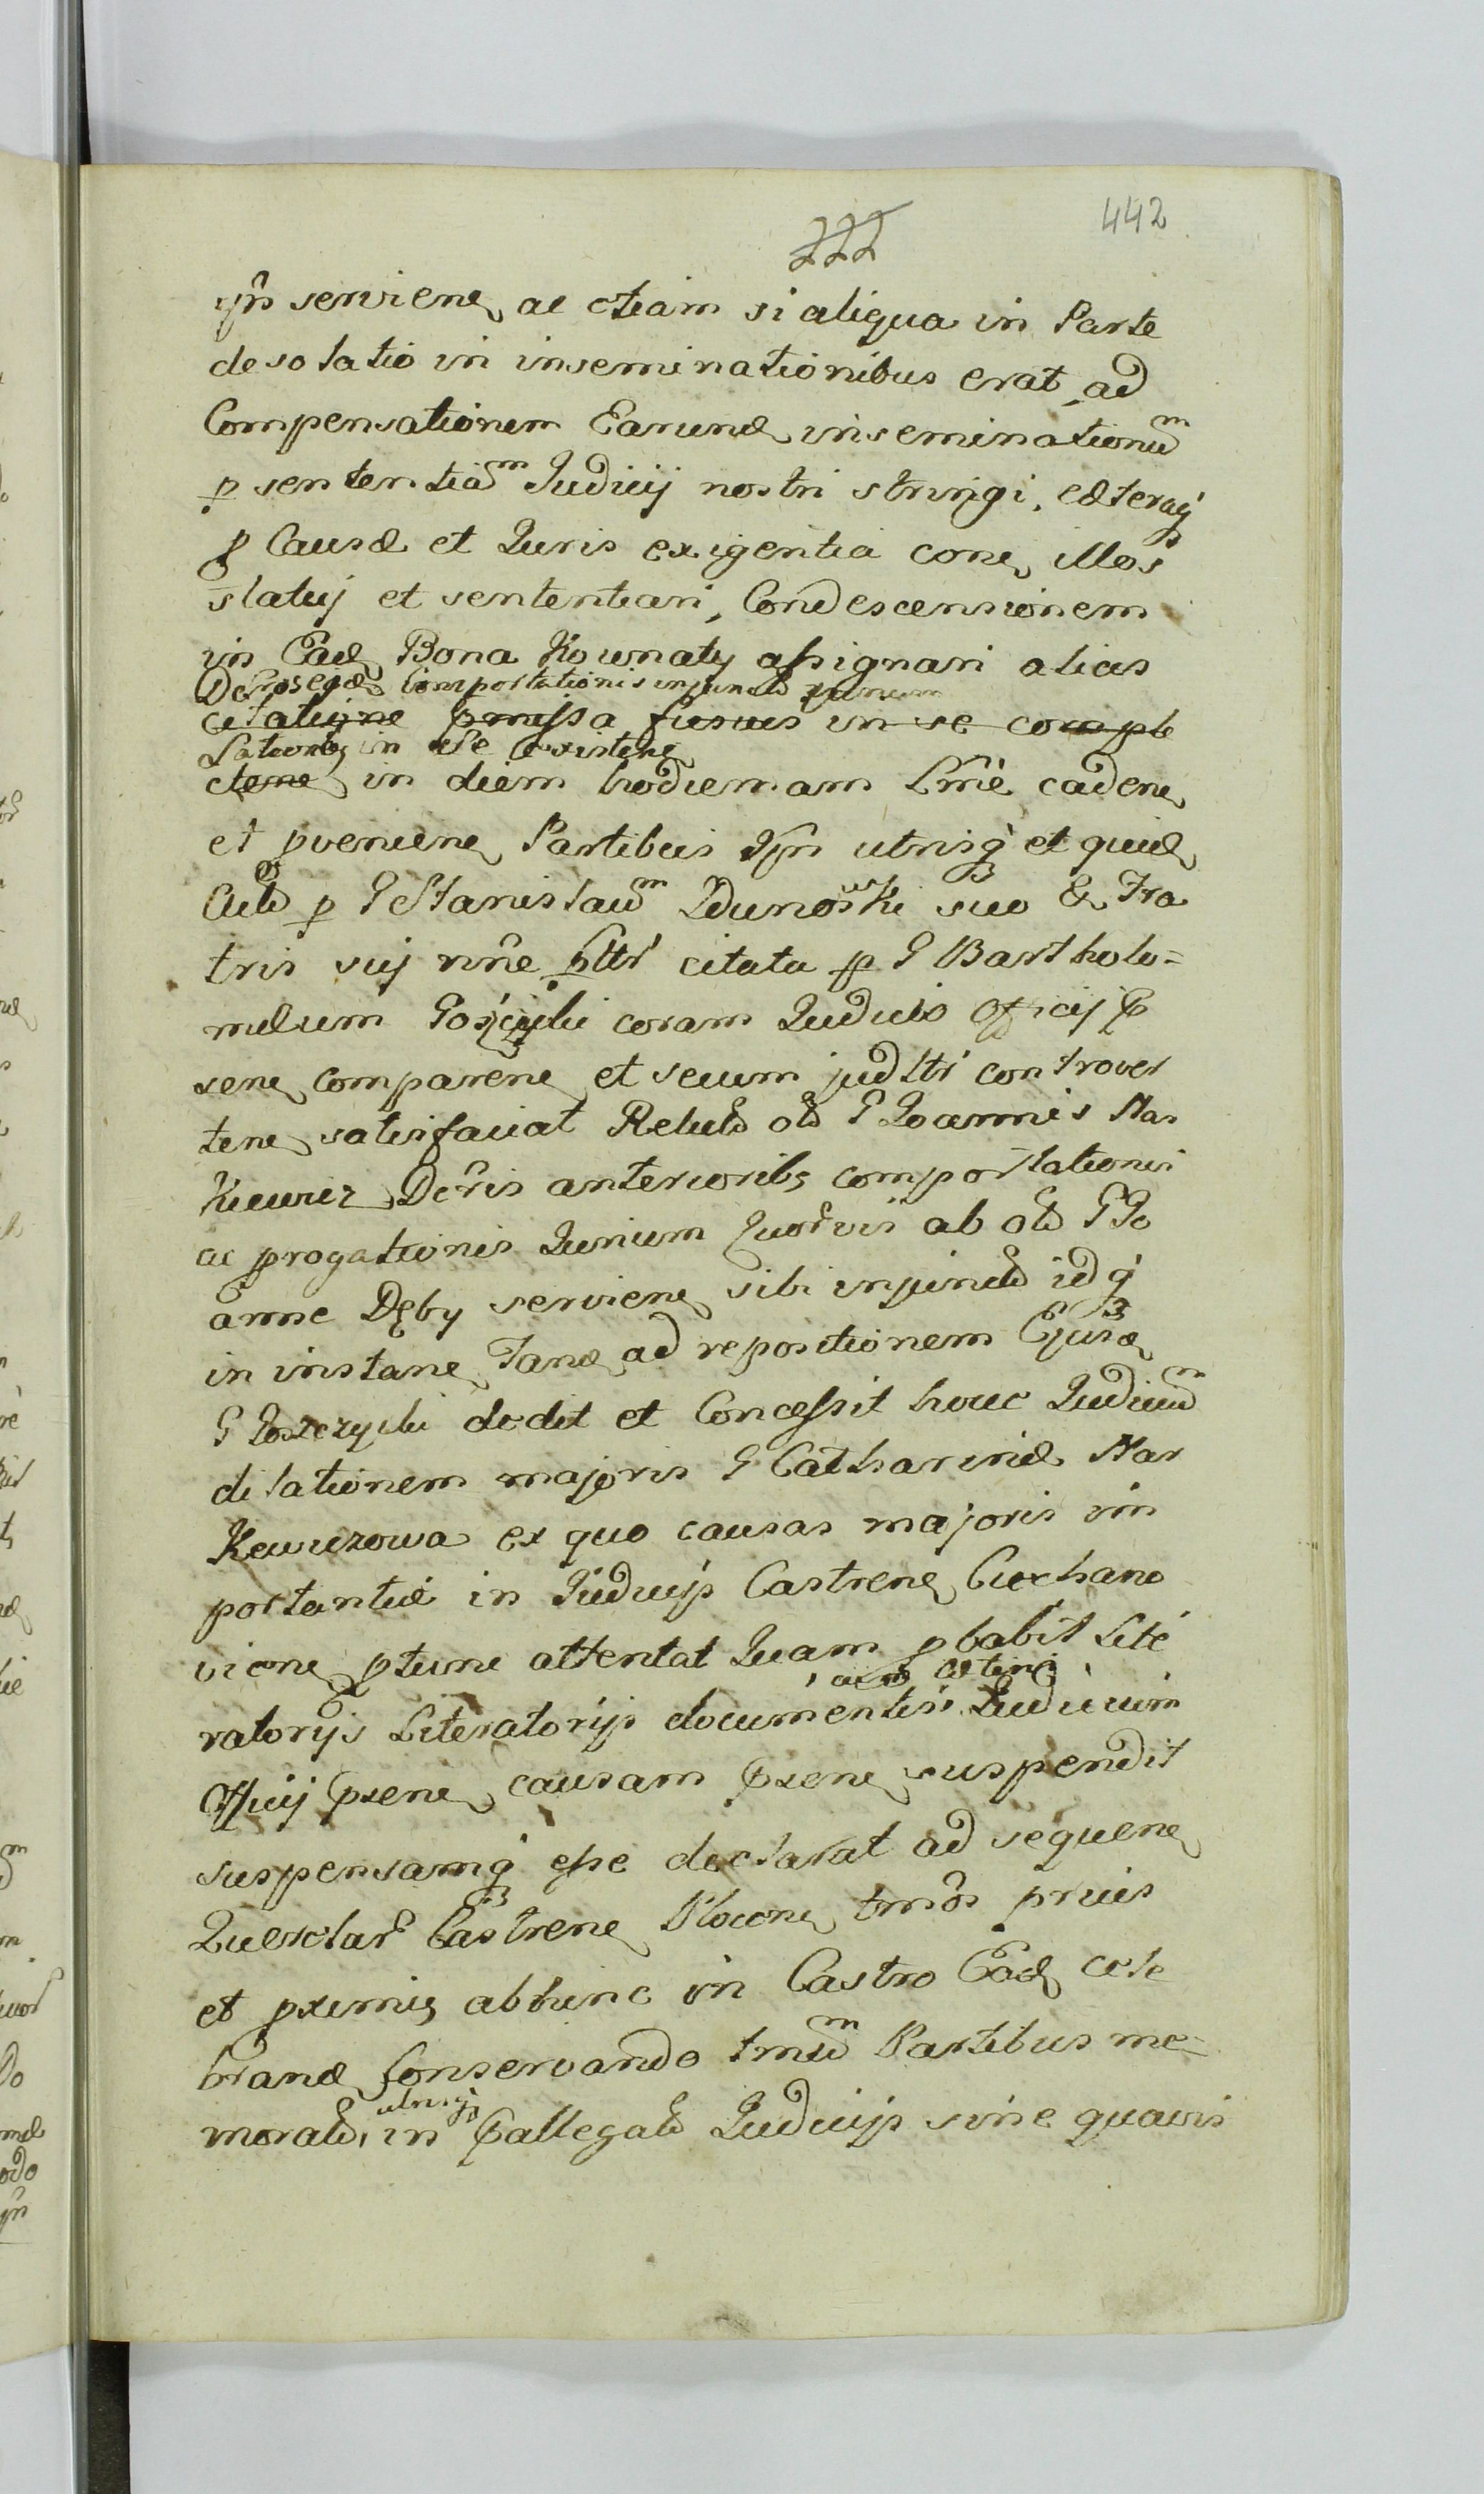 442
222
ijs serviene ac etiam si aliqua in Parte
desolatio in inseminationibus erat, ad
Compensationem Earund inseminationum
p sententiam Judicij nostri stringi, cæteraq
p Causæ et Juris exigentia cone illos
statuj et sententiari, Condescensionem
in Ead Bona Kownaty assignari alias
Comportationis
citatione pmissa fusius in se comple
in Se Existene
ctene in diem hodiernam Lme cadene
et pveniene Partibus Ijs utrisq et quid
p G Stanislaum suo & Fra
tris suj nne citata p G Bartholo=
mæum coram Judicio Officij P
sene comparene et secum judltr controver
tene satisfaciat G Joannis Mar
kiewicz Dcris anterioribs comportationis
ac progationis Jurium quorvis ab G Jo
anne Dęby serviene sibi injunct idq
in instane ad repositionem Ejusd
G dedit et Concessit hocce Judicium
dilationem majoris G Catharinæ Mar
kewiczowa ex quo causas majoris im
portantiæ in Judicijs Castrene Ciechano
viene ptunc attentat Quam pbabit Lite
ratorijs Literatorijs documentis Judicium
Officij Psene causam Psene suspendit
suspensamq esse declarat ad sequene
Querelar Castrene Plocene tmos prius
et pximis abhinc in Castro Ead cele
brand Conservando tmum Partibus me-
utrisq
morat, in Pallegat Judicijs sine quavis